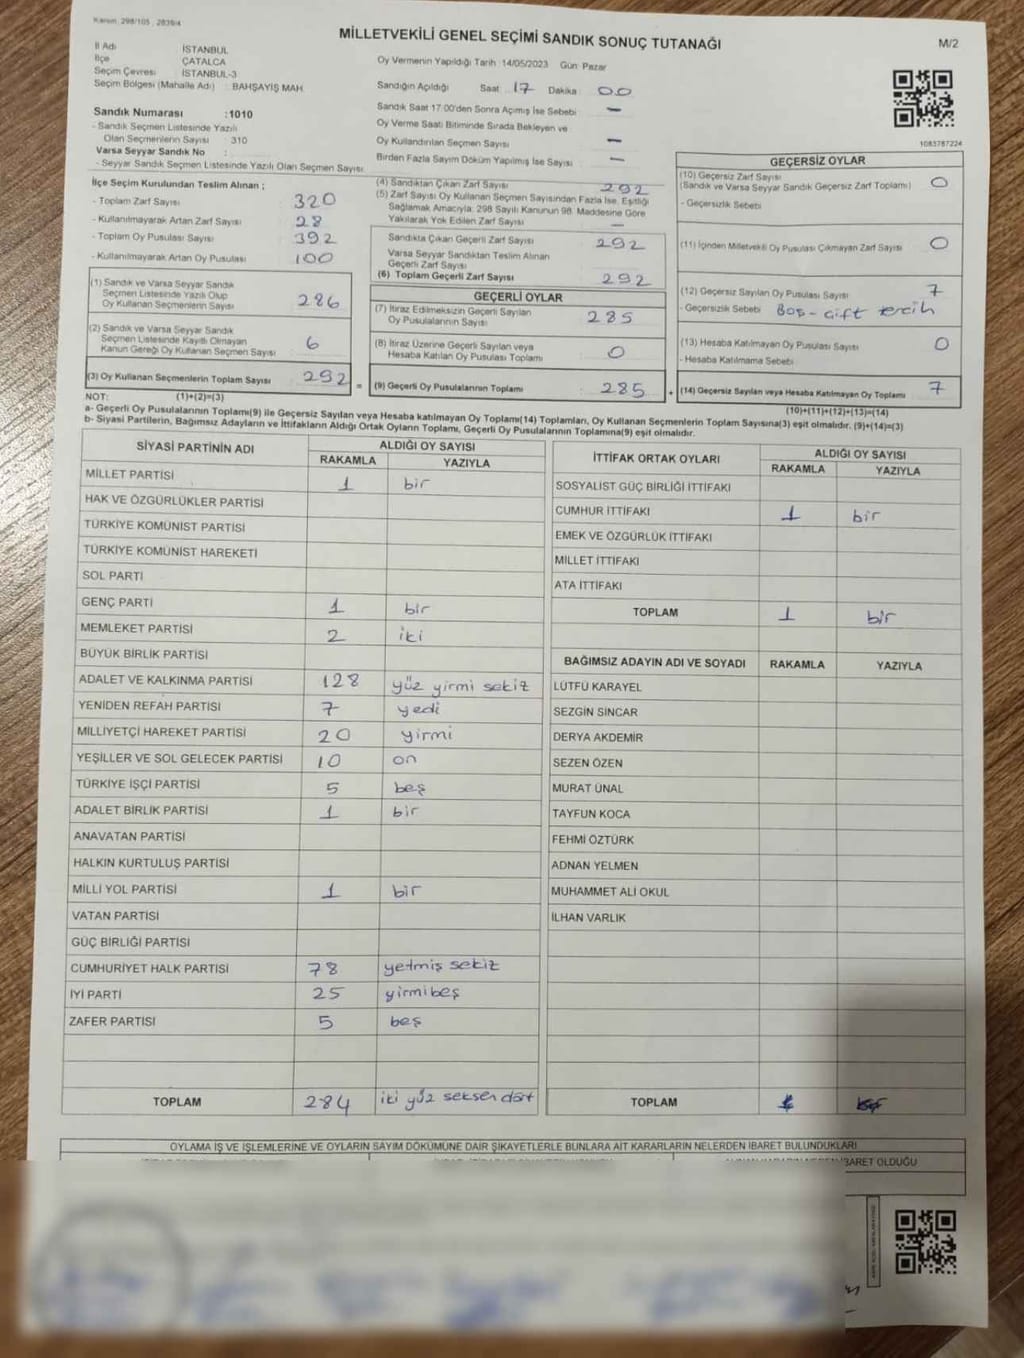 Kanun: 298/105 , 2839/4
MİLLETVEKİLİ GENEL SEÇİMİ SANDIK SONUÇ TUTANAĞI
M/2
İl Adı İSTANBUL
İlçe ÇATALCA
Seçim Çevresi İSTANBUL-3
Seçim Bölgesi (Mahalle Adı) : BAHŞAYIŞ MAH.
Sandık Numarası :1010
- Sandık Seçmen Listesinde Yazılı
Olan Seçmenlerin Sayısı : 310
Varsa Seyyar Sandık No :
- Seyyar Sandık Seçmen Listesinde Yazılı Olan Seçmen Sayısı:
Oy Vermenin Yapıldığı Tarih :14/05/2023 Gün: Pazar
Sandığın Açıldığı Saat :17 Dakika : 00
Sandık Saat 17:00'den Sonra Açımış İse Sebebi : -
Oy Verme Saati Bitiminde Sırada Bekleyen ve
Oy Kullandırılan Seçmen Sayısı : -
Birden Fazla Sayım Döküm Yapılmış İse Sayısı : -
1083787224
İlçe Seçim Kurulundan Teslim Alınan ;
- Toplam Zarf Sayısı : 320
- Kullanılmayarak Artan Zarf Sayısı : 28
- Toplam Oy Pusulası Sayısı : 392
- Kullanılmayarak Artan Oy Pusulası : 100
(1) Sandık ve Varsa Seyyar Sandık
Seçmen Listesinde Yazılı Olup
Oy Kullanan Seçmenlerin Sayısı : 286
(2) Sandık ve Varsa Seyyar Sandık
Seçmen Listesinde Kayıtlı Olmayan
Kanun Gereği Oy Kullanan Seçmen Sayısı : 6
(3) Oy Kullanan Seçmenlerin Toplam Sayısı : 292 =
(4) Sandıktan Çıkan Zarf Sayısı : 292
(5) Zarf Sayısı Oy Kullanan Seçmen Sayısından Fazla İse, Eşitliği
Sağlamak Amacıyla; 298 Sayılı Kanunun 98. Maddesine Göre
Yakılarak Yok Edilen Zarf Sayısı : -
Sandıkta Çıkan Geçerli Zarf Sayısı : 292
Varsa Seyyar Sandıktan Teslim Alınan
Geçerli Zarf Sayısı :
(6) Toplam Geçerli Zarf Sayısı : 292
GEÇERLİ OYLAR
(7) İtiraz Edilmeksizin Geçerli Sayılan
Oy Pusulalarının Sayısı : 285
(8) İtiraz Üzerine Geçerli Sayılan veya
Hesaba Katılan Oy Pusulası Toplamı : 0
(9) Geçerli Oy Pusulalarının Toplamı : 285 +
GEÇERSİZ OYLAR
(10) Geçersiz Zarf Sayısı
(Sandık ve Varsa Seyyar Sandık Geçersiz Zarf Toplamı) : 0
- Geçersizlik Sebebi :
(11) İçinden Milletvekili Oy Pusulası Çıkmayan Zarf Sayısı : 0
(12) Geçersiz Sayılan Oy Pusulası Sayısı : 7
- Geçersizlik Sebebi : Boş - Çift tercih
(13) Hesaba Katılmayan Oy Pusulası Sayısı : 0
- Hesaba Katılmama Sebebi :
(14) Geçersiz Sayılan veya Hesaba Katılmayan Oy Toplamı : 7
NOT: (1)+(2)=(3) (10)+(11)+(12)+(13)=(14)
a- Geçerli Oy Pusulalarının Toplamı(9) ile Geçersiz Sayılan veya Hesaba katılmayan Oy Toplamı(14) Toplamları, Oy Kullanan Seçmenlerin Toplam Sayısına(3) eşit olmalıdır. (9)+(14)=(3)
b- Siyasi Partilerin, Bağımsız Adayların ve İttifakların Aldığı Ortak Oyların Toplamı, Geçerli Oy Pusulalarının Toplamına(9) eşit olmalıdır.
SİYASİ PARTİNİN ADI ALDIĞI OY SAYISI
RAKAMLA YAZIYLA
MİLLET PARTİSİ 1 bir
HAK VE ÖZGÜRLÜKLER PARTİSİ
TÜRKİYE KOMÜNİST PARTİSİ
TÜRKİYE KOMÜNİST HAREKETİ
SOL PARTİ
GENÇ PARTİ 1 bir
MEMLEKET PARTİSİ 2 iki
BÜYÜK BİRLİK PARTİSİ
ADALET VE KALKINMA PARTİSİ 128 yüz yirmi sekiz
YENİDEN REFAH PARTİSİ 7 yedi
MİLLİYETÇİ HAREKET PARTİSİ 20 yirmi
YEŞİLLER VE SOL GELECEK PARTİSİ 10 on
TÜRKİYE İŞÇİ PARTİSİ 5 beş
ADALET BİRLİK PARTİSİ 1 bir
ANAVATAN PARTİSİ
HALKIN KURTULUŞ PARTİSİ
MİLLİ YOL PARTİSİ 1 bir
VATAN PARTİSİ
GÜÇ BİRLİĞİ PARTİSİ
CUMHURİYET HALK PARTİSİ 78 yetmiş sekiz
İYİ PARTİ 25 yirmibeş
ZAFER PARTİSİ 5 beş
TOPLAM 284 iki yüz seksen dört
İTTİFAK ORTAK OYLARI ALDIĞI OY SAYISI
RAKAMLA YAZIYLA
SOSYALİST GÜÇ BİRLİĞİ İTTİFAKI
CUMHUR İTTİFAKI 1 bir
EMEK VE ÖZGÜRLÜK İTTİFAKI
MİLLET İTTİFAKI
ATA İTTİFAKI
TOPLAM 1 bir
BAĞIMSIZ ADAYIN ADI VE SOYADI RAKAMLA YAZIYLA
LÜTFÜ KARAYEL
SEZGİN SİNCAR
DERYA AKDEMİR
SEZEN ÖZEN
MURAT ÜNAL
TAYFUN KOCA
FEHMİ ÖZTÜRK
ADNAN YELMEN
MUHAMMET ALİ OKUL
İLHAN VARLIK
TOPLAM
OYLAMA İŞ VE İŞLEMLERİNE VE OYLARIN SAYIM DÖKÜMÜNE DAİR ŞİKAYETLERLE BUNLARA AİT KARARLARIN NELERDEN İBARET BULUNDUKLARI
İBARET OLDUĞU